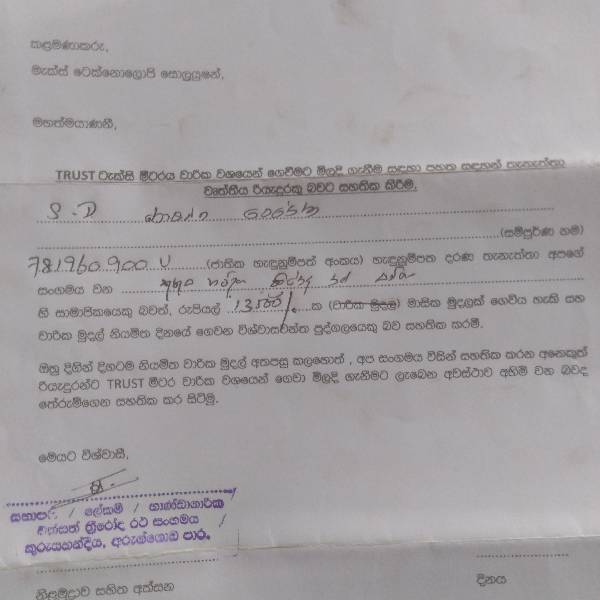 කළමණාකරු,
මැක්ස් ටෙක්නොලොජි සොලුයුෂන්,
මහත්මයාණනි,
TRUST ටැක්සි මීටරය වාරික වශයෙන් ගෙවීමට මිලදී ගැනීම සඳහා පහත සඳහන් තැනැත්තා
වෘත්තීය රියැදුරකු බවට සහතික කිරීම.
S.D
(සම්පූර්ණ නම)
781960900 V (ජාතික හැඳුනුම්පත් අංකය) හැඳුනුම්පත දරණ තැනැත්තා අපගේ
සංගමය වන
හි සාමාජිකයෙකු බවත්, රුපියල් 13,500/= ක (වාරික මුදල) මාසික මුදලක් ගෙවිය හැකි සහ
වාරික මුදල් නියමිත දිනයේ ගෙවන විශ්වාසවන්ත පුද්ගලයෙකු බව සහතික කරමි.
ඔහු දිගින් දිගටම නියමිත වාරික මුදල් අතපසු කලහොත් , අප සංගමය විසින් සහතික කරන අනෙකුත්
රියැදුරන්ට TRUST මීටර වාරික වශයෙන් ගෙවා මිලදී ගැනීමට ලැබෙන අවස්ථාව අහිමි වන බවද
තේරුම්ගෙන සහතික කර සිටිමු.
මෙයට විශ්වාසී,
සභාපති / ලේකම් / භාණ්ඩාගාරික
එක්සත් ත්‍රීරෝද රථ සංගමය
කුරුයහන්දිය, අරුග්ගොඩ පාර.
නිළමුද්‍රාව සහිත අත්සන
දිනය